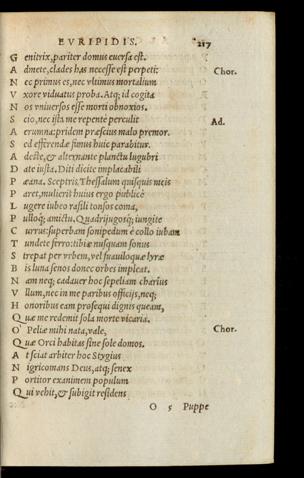 EVRIPIDIS. 217
Genitrix, pariter domus euersa est.
Admete, clades has necesse est perpeti: Chor.
Nec primus es, nec vltimus mortalium
Vxore viduatus proba. Atq; id cogita
Nos vniuersos esse morti obnoxios.
Scio, nec ista me repente perculit Ad.
Aerumna: pridem præscius malo premor.
Sed efferendæ simus huic parabitur.
Adeste, & alternante planctu lugubri
Date iusta. Diti dicite implacabili
Pæana. Sceptris Thessalum quisquis meis
Paret, mulierit huius ergo publicè
Lugere iubeo rasili tonsos coma,
Pulloq; amictu. Quadrijugosq; iungite
Currus: superbam sonipedum è collo iubam
Tundete ferro: tibiæ nusquam sonus
Strepat per vrbem, vel suauiloquæ lyræ
Bis luna senos donec orbes impleat.
Nam neq; cadauer hoc sepeliam charius
Vllum, nec in me paribus officijs, neq;
Honoribus eam prosequi dignis queam,
Quæ me redemit sola morte vicaria.
O Peliæ mihi nata, vale, Chor.
Quæ Orci habitas sine sole domos.
At sciat arbiter hoc Stygius
Nigricomans Deus, atq; senex
Portitor exanimem populum
Qui vehit, & subigit residens
O 5 Puppe